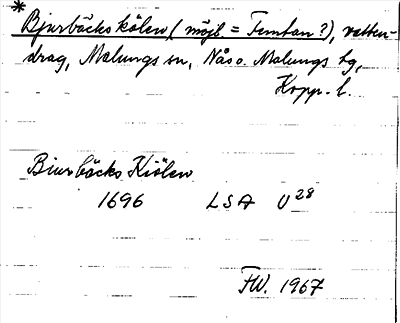 * Bjurbäckskölen (möjl = Femtan?), vatten-
drag, Malungs sn, Nås o. Malungs tg,
Kopp. l.
Biurbäcks Kiölen
1696 LSA U 28
FW. 1967